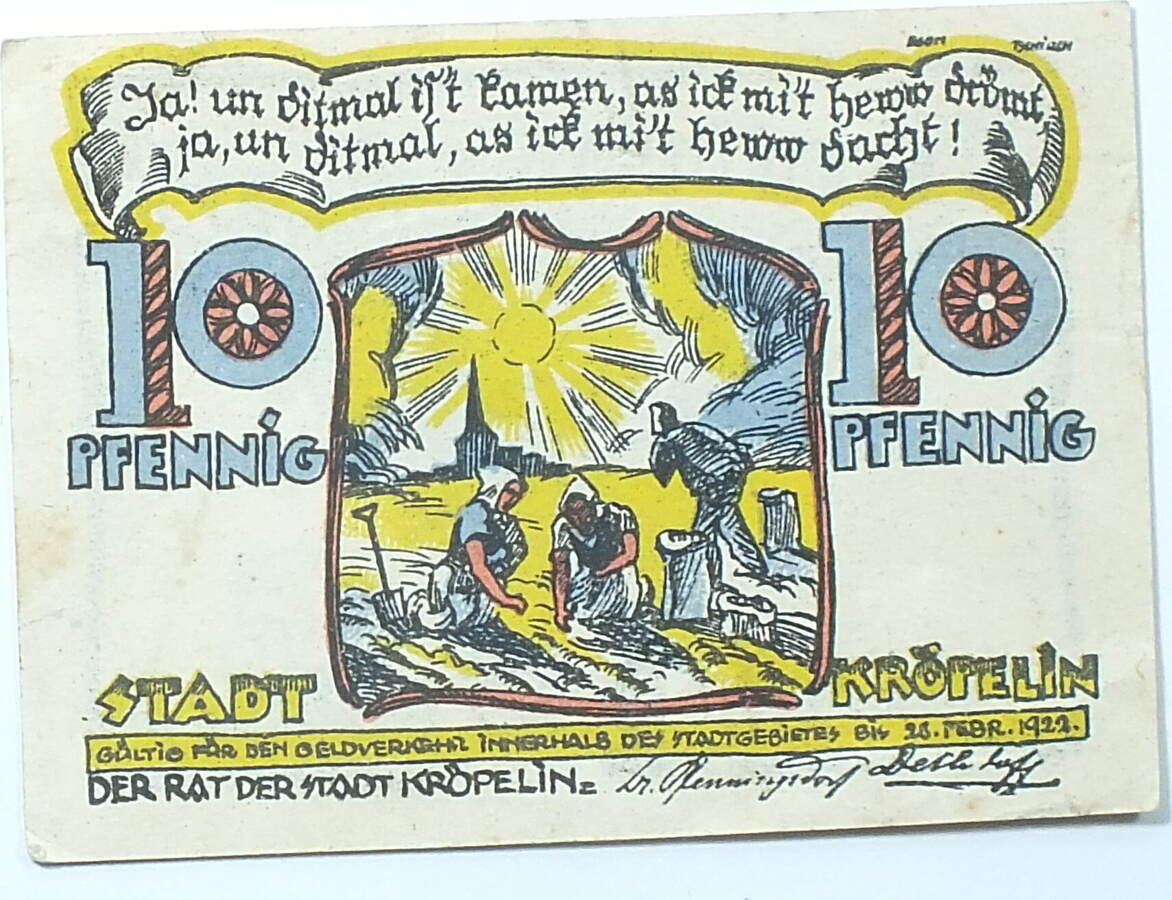 EGON TSCHIRCH
Ja! un ditmal is't kamen, as ick mi't heww drömt,
ja, un ditmal, as ick mi't heww dacht!
10 10
PFENNIG PFENNIG
STADT KRÖPELIN
GÜLTIG FÜR DEN GELDVERKEHR INNERHALB DES STADTGEBIETES BIS 28. FEBR. 1922.
DER RAT DER STADT KRÖPELIN: Dr. Pfenningsdorf